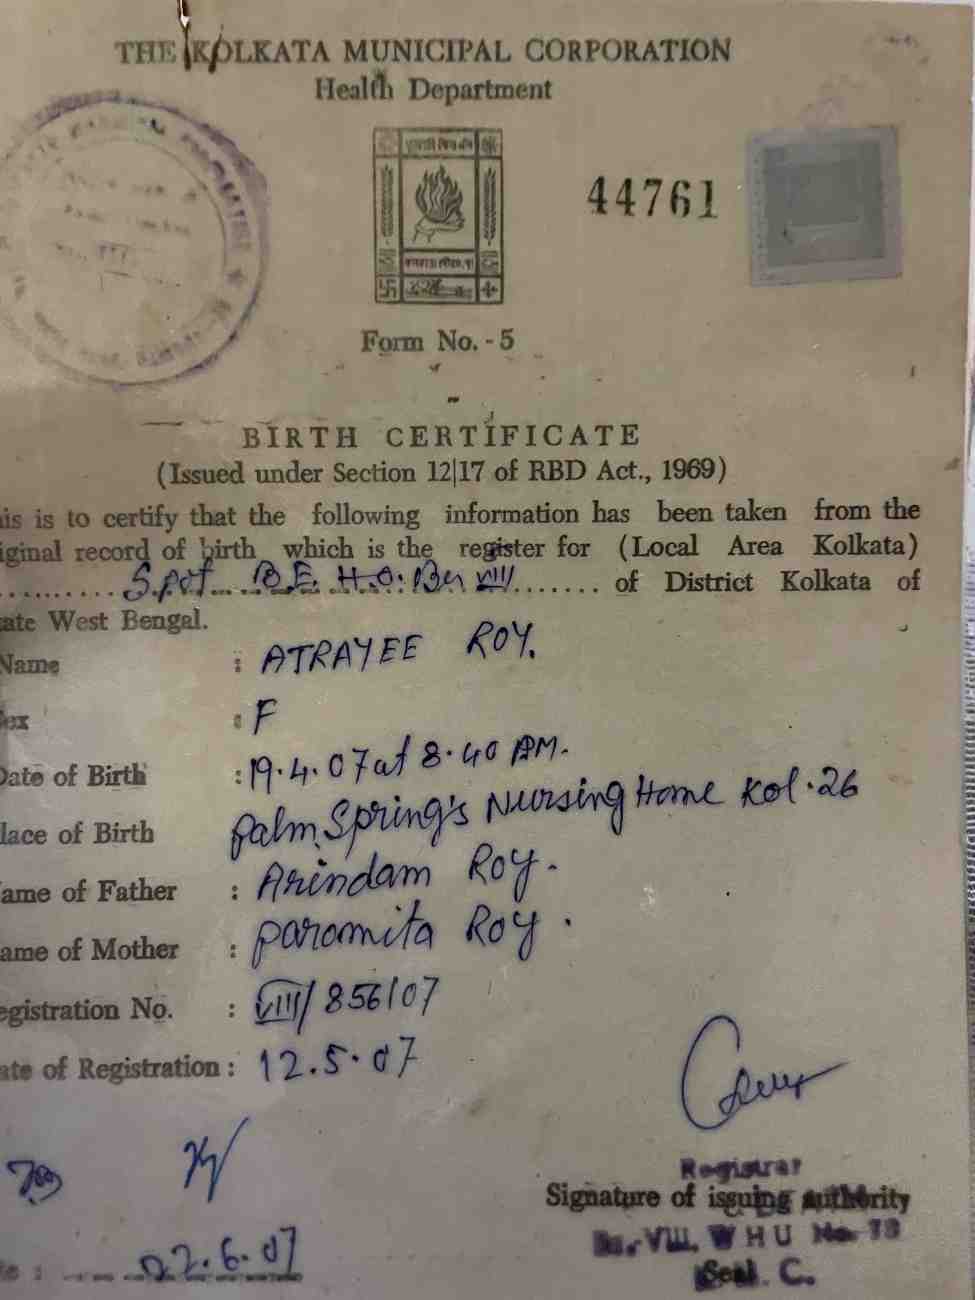 THE KOLKATA MUNICIPAL CORPORATION
Health Department
44761
Form No. - 5
BIRTH CERTIFICATE
(Issued under Section 12|17 of RBD Act., 1969)
is is to certify that the following information has been taken from the
iginal record of birth which is the register for (Local Area Kolkata)
of District Kolkata of
ate West Bengal.
Name : ATRAYEE ROY.
ex : F
Date of Birth : 19.4.07 at 8.40
lace of Birth Palm Spring's Nursing Home Kol.26
ame of Father : Arindam Roy.
ame of Mother : Paromita Roy.
egistration No. : VIII/856/07
ate of Registration : 12.5.07
Registrar
Signature of issuing authority
VIII, W H U No.
Seal C.
02.6.07